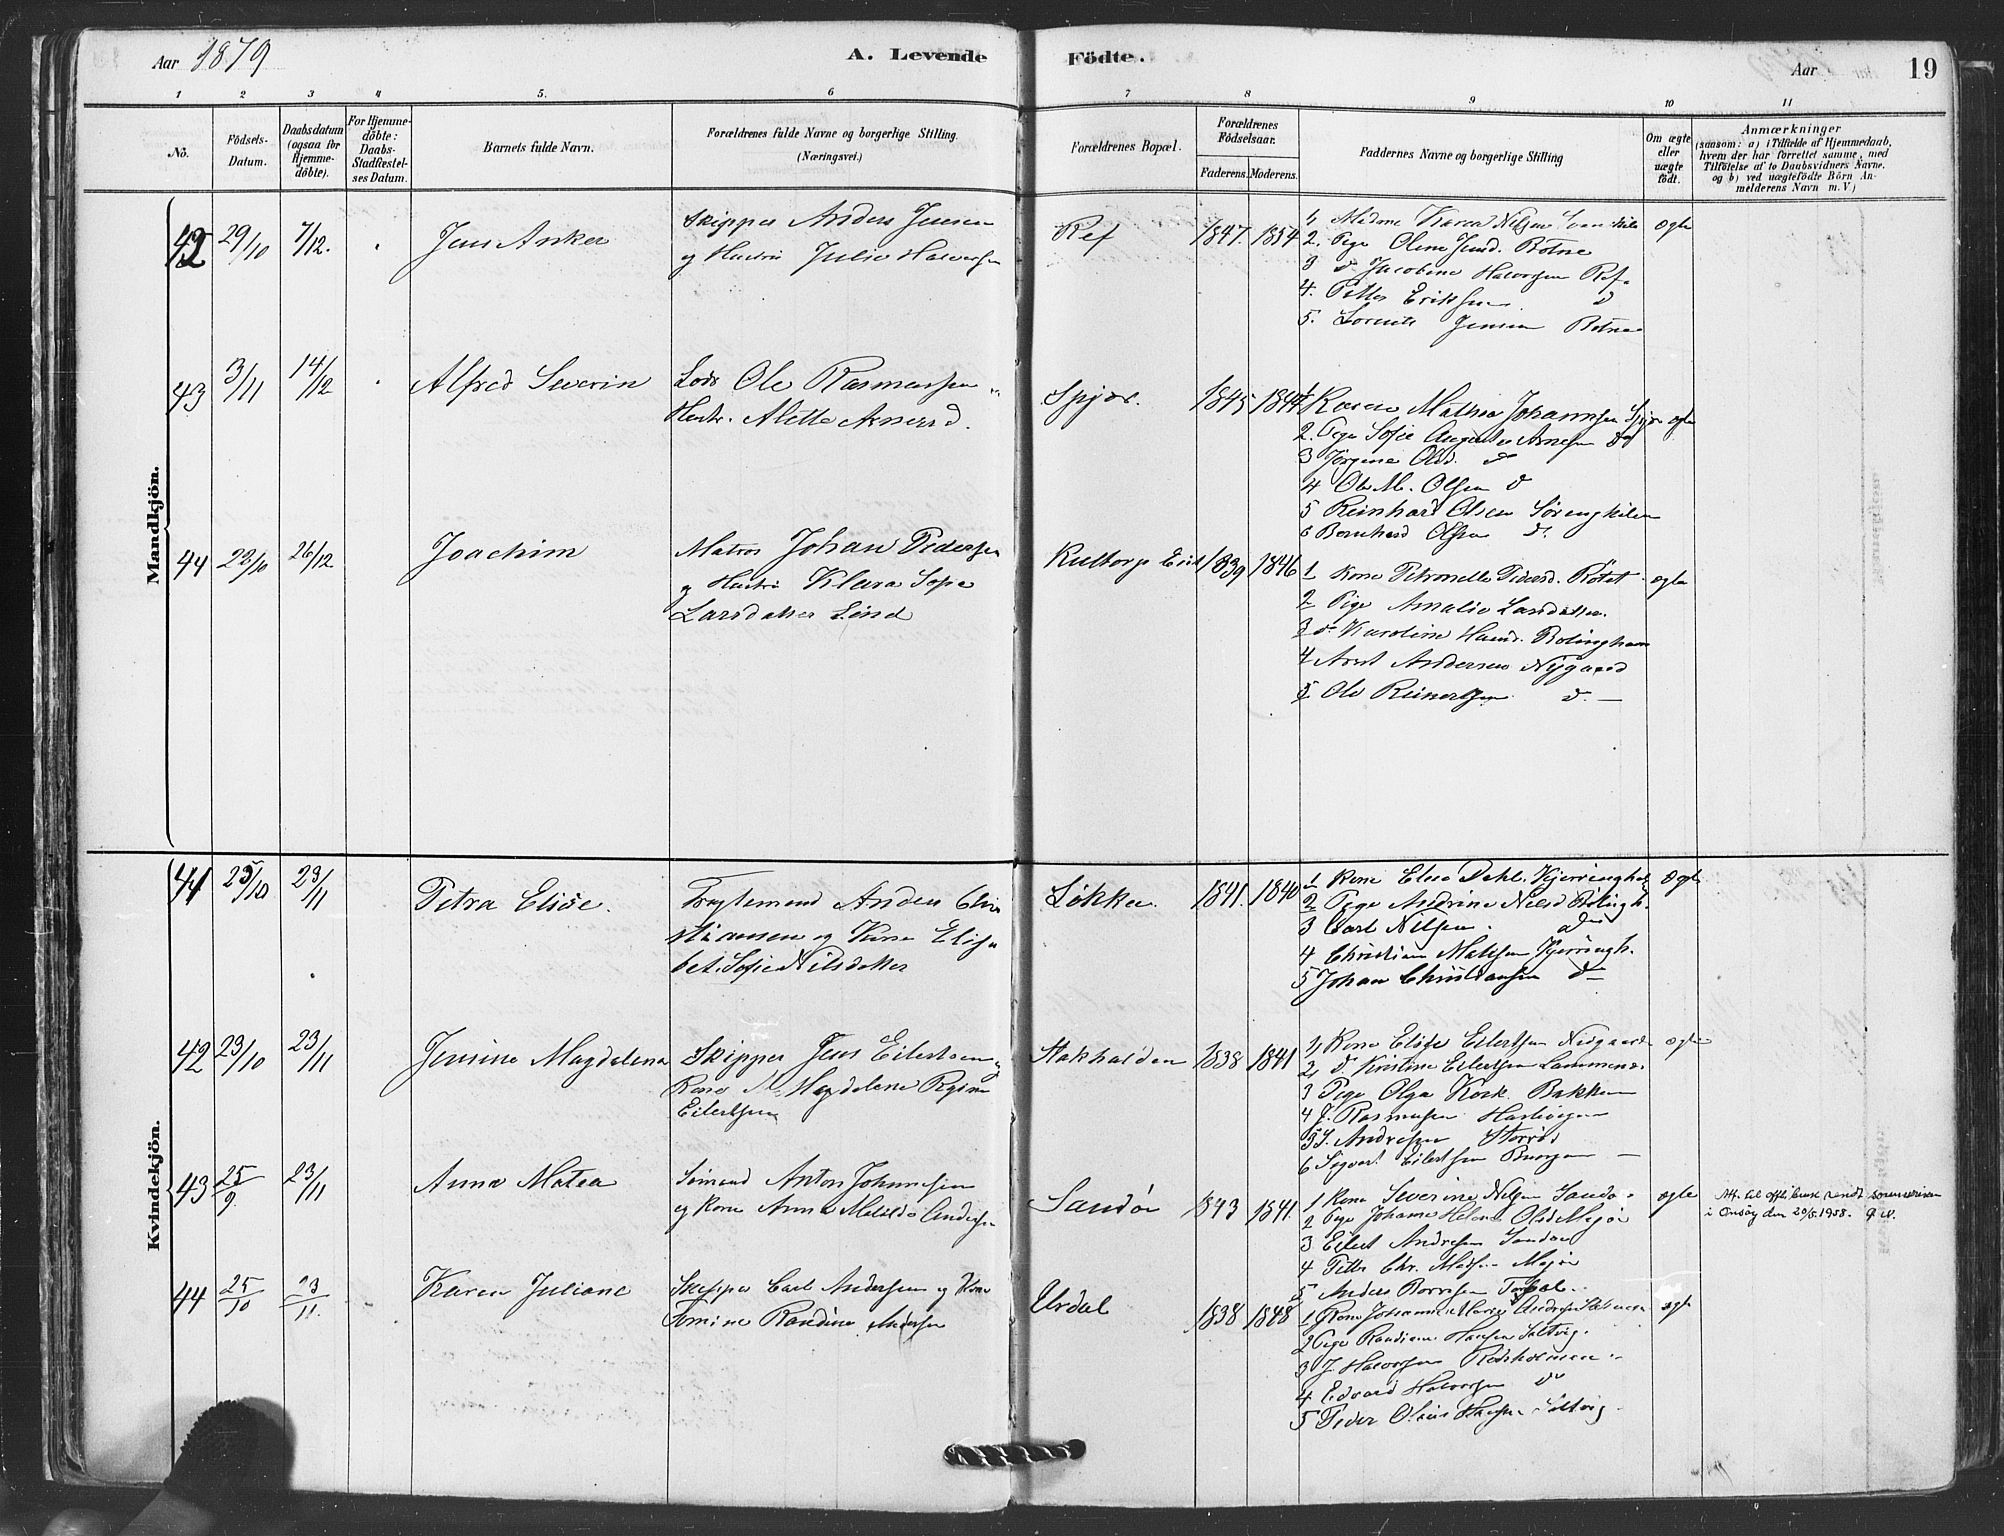 Aar 1879
A. Levende Födte.
Aar
19
1 2 3 4 5. 6 7 8 9 10 11
No.
Födsels-Datum.
Daabsdatum (ogsaa för Hjemme-döbte).
For Hjemme-döbte: Daabs-Stadfæstel-ses Datum.
Barnets fulde Navn.
Forældrenes fulde Navne og borgerlige Stilling. (Næringsvei.)
Forældrenes Bopæl.
Forældrenes Födselsaar.
Faderens. Moderens.
Faddernes Navne og borgerlige Stilling
Om ægte eller uægte födt.
Anmærkninger
(saasom: a) i Tilfælde af Hjemmedaab, hvem der har forrettet samme, med Tilföielse af to Daabsvidners Navne. og b) ved uægtefödte Börn An-melderens Navn m. V.)
Mandkjön.
42 29/10 7/12. Jens Anker
Skipper Anders Jensen
og Hustru Julie Halvorsen
Ref 1847. 1854
1, Madme Karen Nilsen ægte
2. Pige Oline Jensd. Botne
3 do Jacobine Halvorsen Ref.
4. Petter Eriksen do
5. Lorents Jensen Botne
43 3/11 14/12 Alfred Severin
Lods Ole Rasmussen
Hustr. Alette Arnesd.
Spjær. 1845 1844
1 Karen Mathea Johannsen Spjær ægte
2. Pige Sofie Augusta Arnesen do
3 Jørgine Olsd. do
4 Ole M. Olsen do
5 Reinhard Olsen Sørengkilen
6 Bernhard Olsen do.
44 22/10 26/12 Joachim
Matros Johan Pedersen
og Hustru Klara Sofie
Larsdatter Lind
Kultorp Eiet 1839 1846
1 Kone Petronelle Pedersd. Røtet ægte
2 Pige Amalie Larsdatter.
3 do Karoline Hansd. Bolinghavn
4 Arnt Andersen Nygaard
5 Ole Reinertsen do. —
Kvindekjön.
41 25/10 23/11 Petra Elise.
Fragtemand Anders Chri
stiansen og Kone Elisa
bet. Sofie Nilsdatter
Løkken. 1841. 1840
1 Kone Elise Dahl. Kjerringholm ægte
2 Pige Andrine Nilsd Bolingh.
3 Carl Nilsen. do
4 Christian Mattsen Kjerringh.
5 Johan Christiansen do
42 23/10 23/11 Jensine Magdalena
Skipper Jens Eilertsen og
Kone M. Magdalene Regine
Eilertsen
Stakhalden 1838 1841
1, Kone Elise Eilertsen Nisgaard ægte
2, do Kristine Eilertsen Lammens.
3 Pige Olga Kock Bakken
4 J. Rasmusen
5 S. Andresen Storrø
6 Sigvart Eilertsen Bergen —
43 25/9 23/11 Anna Matea
Sömand Anton Johannesen
og Kone Anna Matilda Andersen
Sandø 1843 1841.
1 Kone Severine Nilsen Sandø ægte
2 Pige Johanne Helene Olsd Mejø
3 Eilert Andresen Sandøe
4 Petter Chr. Madsen Mejø
5 Anders Borresen
Att. til offtl. bruk sendt
i Onsøy den 20/5. 1958.
44 25/10 23/11. Karen Juliane
Skipper Carl Andersen og Kone
Tomine Randine Andersen
Urdal 1838 1848
1 Kone Johanne Marie Andersen ægte
2 Pige Randine Hansen Saltvig.
3 J. Halvorsen Rødsholmen.
4 Edvard Halvorsen do
5 Peder Olaus Hansen Saltvig.